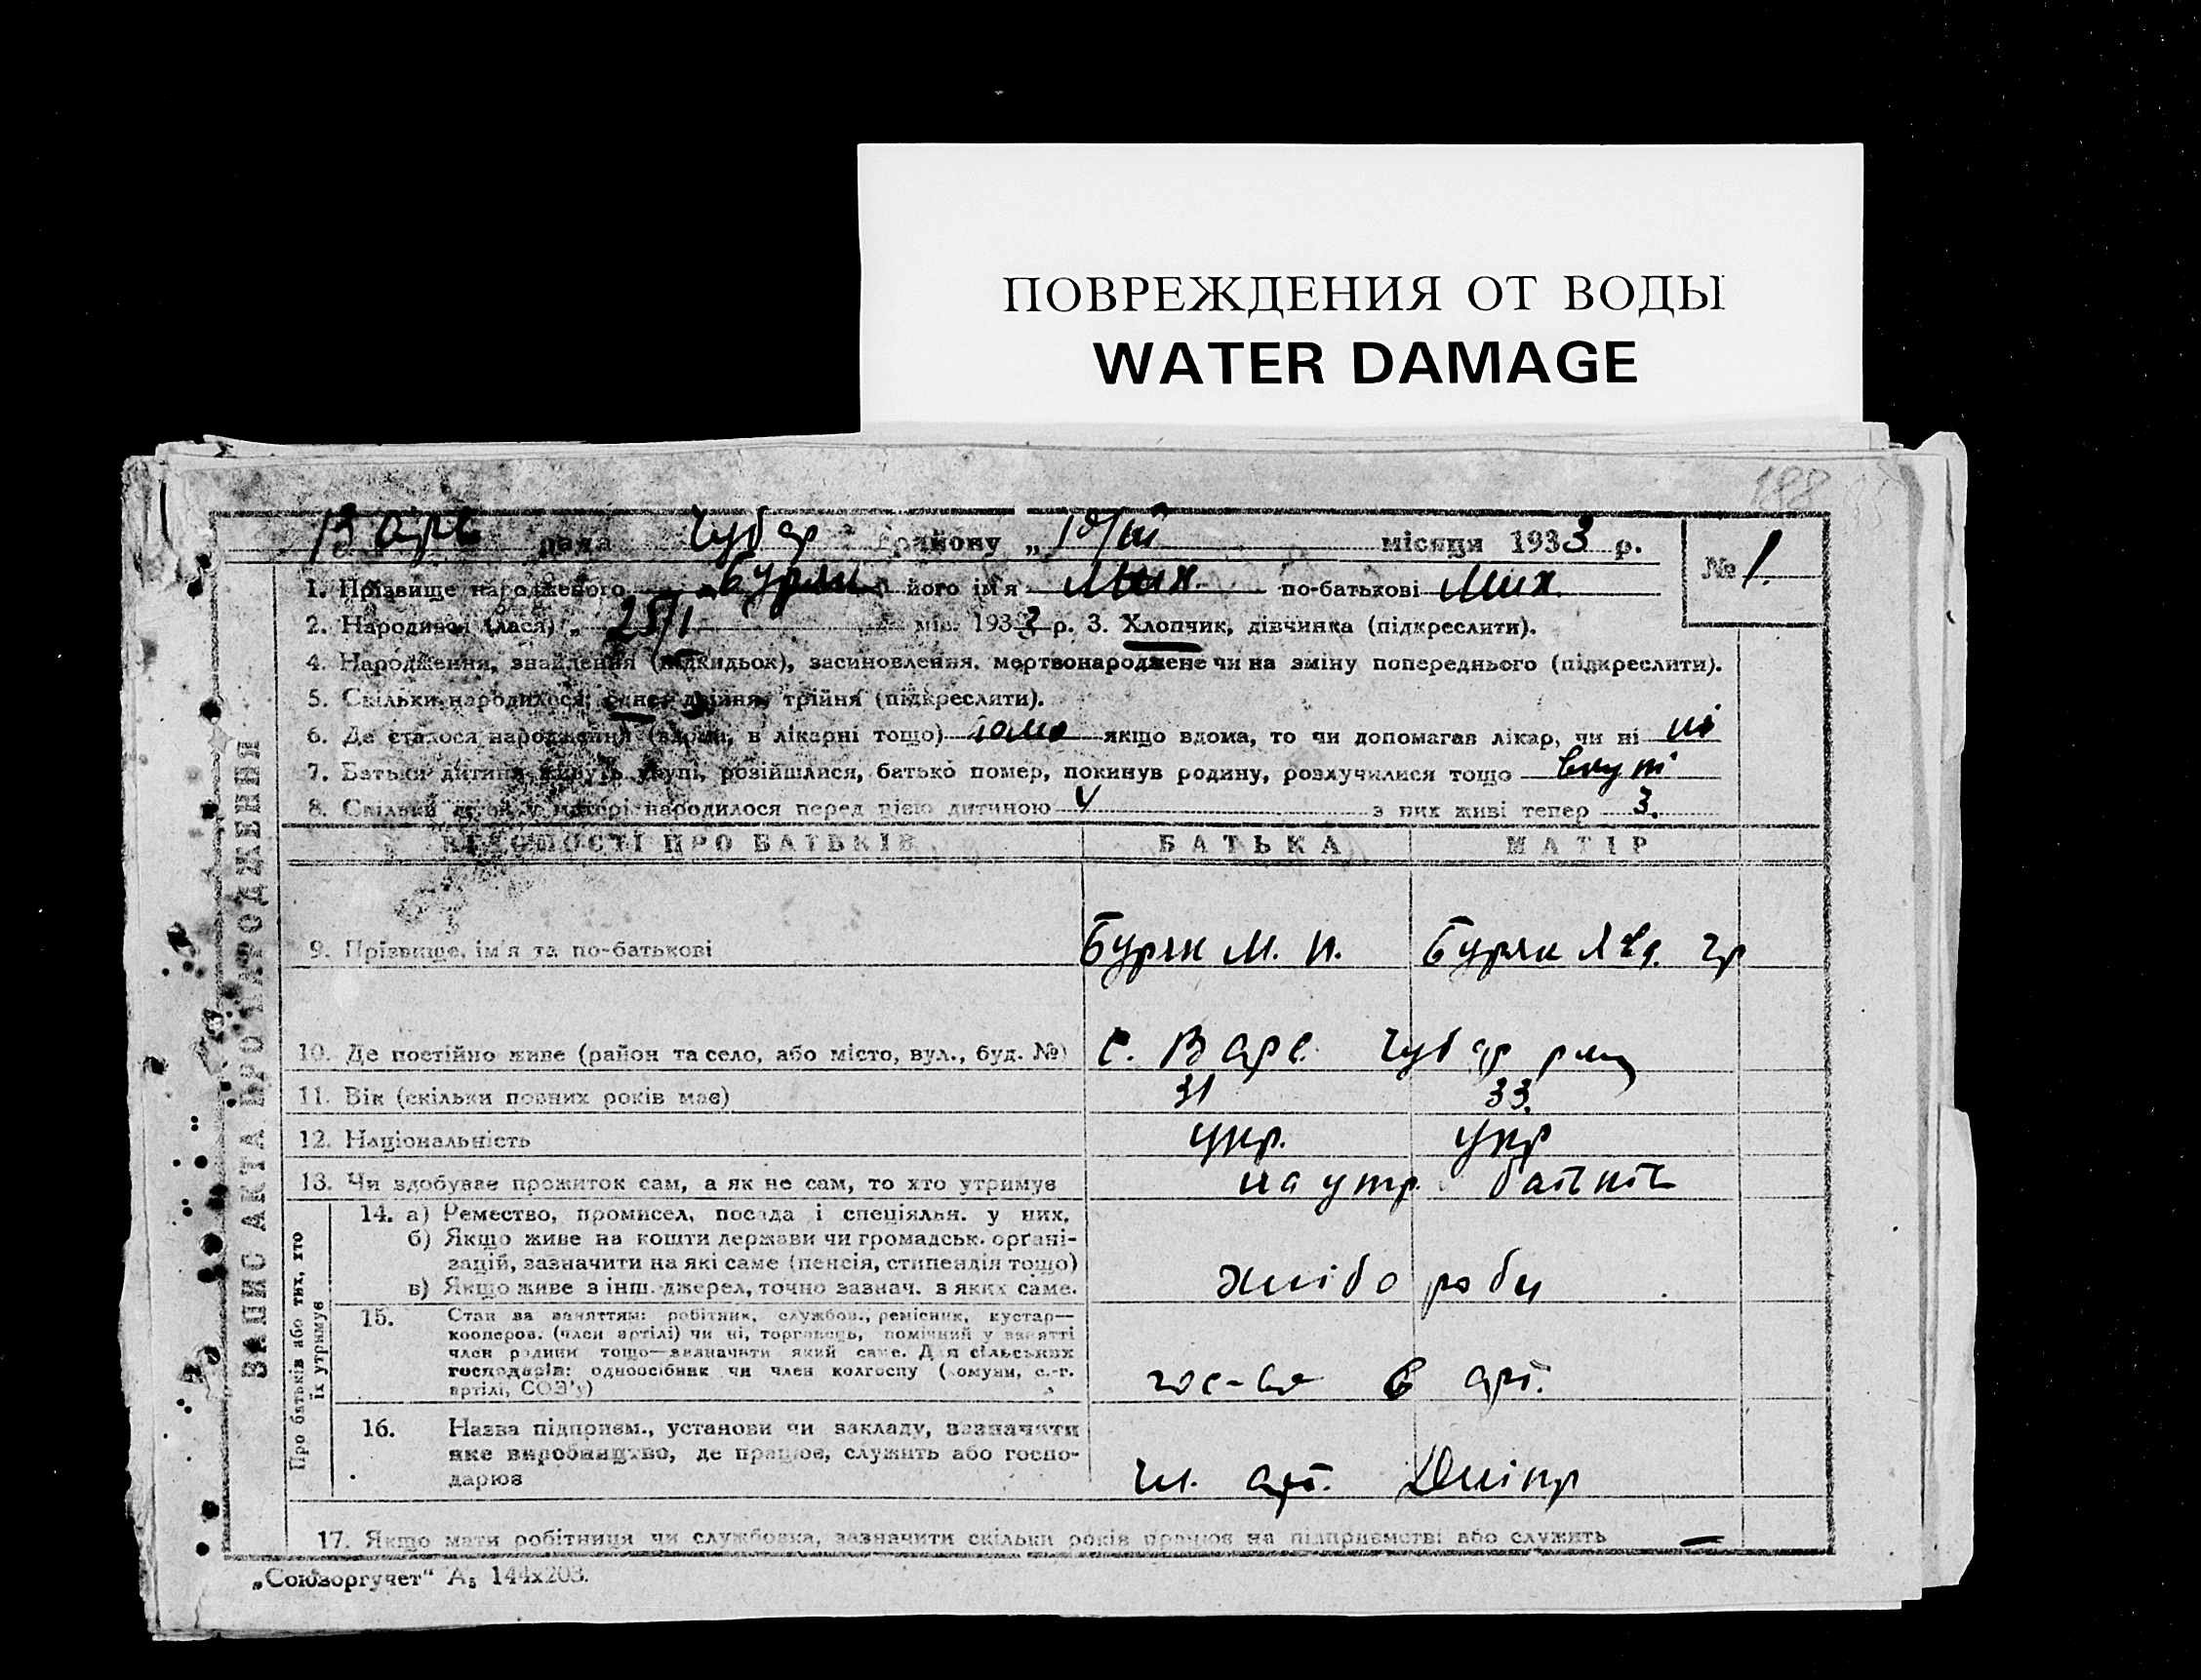 ПОВРЕЖДЕНИЯ ОТ ВОДЫ
WATER DAMAGE
188
Варв рада Чубар району „10/III місяця 1933 р.
№ 1.
1. Прізвище народженого Буряк його ім'я Мих. по-батькові Мих.
2. Народився (лася) „ 25/I міс. 1933 р. 3. Хлопчик, дівчинка (підкреслити).
4. Народження, знайдення (підкидьок), засиновлення, мертвонароджене чи на зміну попереднього (підкреслити).
5. Скільки народилося: одне, двійня, трійня (підкреслити).
6. Де сталося народження (вдома, в лікарні тощо) якщо вдома, то чи допомагав лікар, чи ні ні
7. Батьки дитини живуть укупі, розійшлися, батько помер, покинув родину, розлучилися тощо вкупі
8. Скільки дітей у матері народилося перед цією дитиною 4 з них живі тепер 3.
ВІДОМОСТІ ПРО БАТЬКІВ БАТЬКА МАТІР
9. Прізвище, ім'я та по-батькові Буряк М. И. Буряк Явд. Гр
10. Де постійно живе (район та село, або місто, вул., буд. №) с. Варв. Чубар
11. Вік (скільки повних років має) 31 33.
12. Національність укр. укр
13. Чи здобуває прожиток сам, а як не сам, то хто утримує на утр батьків
14. а) Ремество, промисел, посада і спеціяльн. у них,
б) Якщо живе на кошти держави чи громадськ. органі-
зацій, зазначити на які саме (пенсія, стипендія тощо)
в) Якщо живе з інш. джерел, точно зазнач. з яких саме. хлібороби
15. Стан за заняттям: робітник, службов., ремісник, кустар—
кооперов. (член артілі) чи ні, торговець, помічний у занятті
член родини тощо—зазначити який саме. Для сільських
господарів: одноосібник чи член колгоспу (комуни, с.-г.
артілі, СОЗ'у) гос-во в арт.
16. Назва підприєм., установи чи закладу, зазначити
яке виробництво, де працює, служить або госпо-
дарює чл. арт. Дніпр
17. Якщо мати робітниця чи службовка, зазначити скільки років працює на підприємстві або служить —
ЗАПИС АКТА ПРО НАРОДЖЕННЯ
Про батьків або тих, хто
їх утримує
„Союзоргучет" А₅ 144x203.